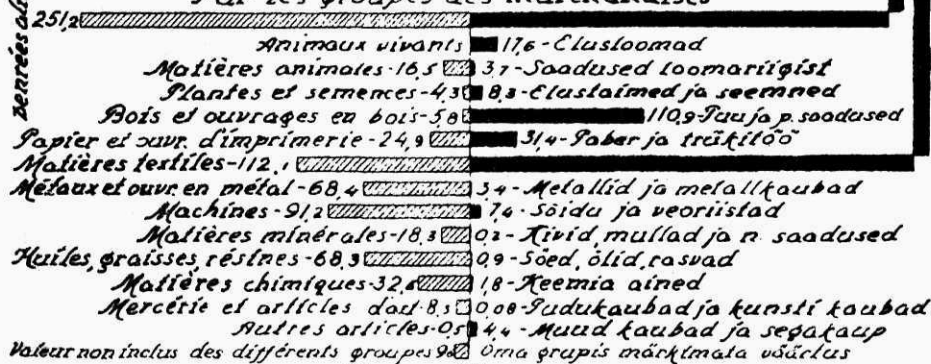 Par les groupes des marchandises
251,2
Animaux vivants 17,6 - Elusloomad
Matières animales - 16,5 3,7 - Saadused loomariigist
Plantes et semences - 4,3 8,3 - Elustaimed ja seemned
Bois et ouvrages en bois - 5,8 110,9 - Puu ja p. saadused
Papier et ouvr. d'imprimerie - 24,9 31,4 - Paber ja trükitöö
Matières textiles - 112,1
Métaux et ouvr. en métal - 68,4 3,4 - Metallid ja metallkaubad
Machines - 91,2 7,4 - Sõidu ja veoriistad
Matières minérales - 18,3 0,2 - Kivid, mullad ja n. saadused
Huiles, graisses, résines - 68,3 0,9 - Söed, õlid, rasvad
Matières chimiques - 32,6 1,8 - Keemia ained
Mercérie et articles d'art - 8,5 0,08 - Pudukaubad ja kunsti kaubad
Autres articles - 0,5 4,4 - Muud kaubad ja segakaup
Valeur non inclus des différents groupes Oma grupis märkimata väärtus
Denrées